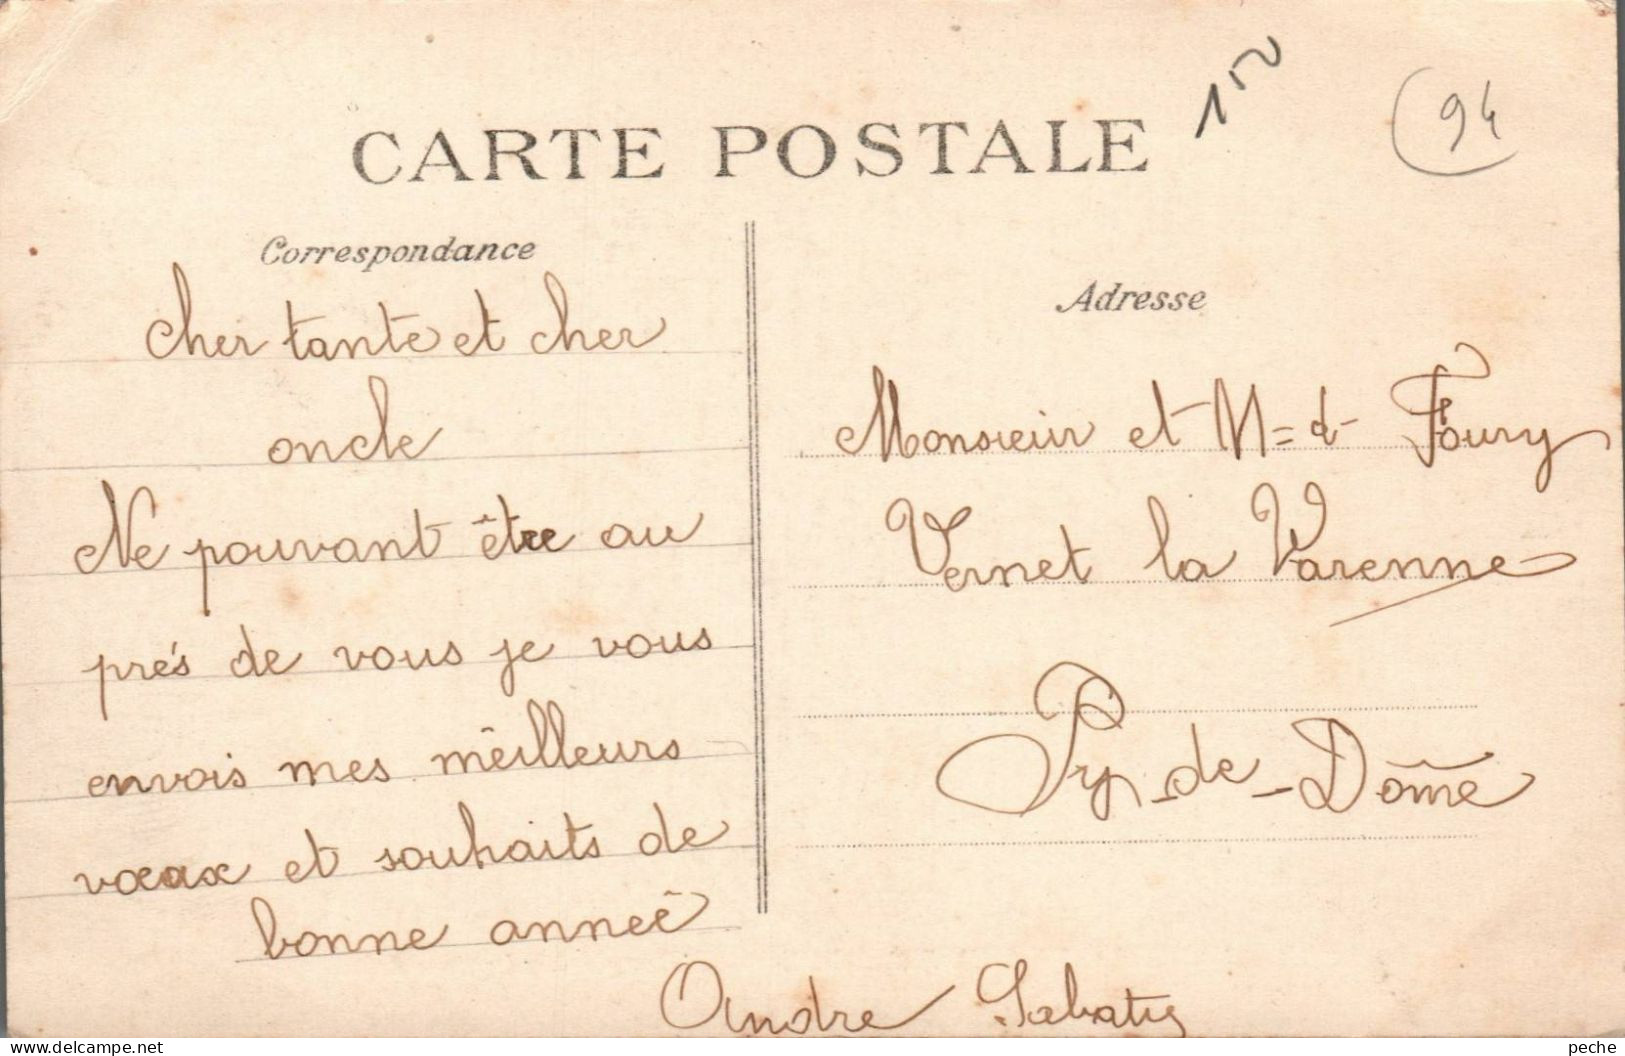 CARTE POSTALE
150
94
Correspondance
Cher tante et cher
oncle
Ne pouvant être au
prés de vous je vous
envois mes meilleurs
voeux et souhaits de
bonne année
Andre Sabatig
Adresse
Monsieur et M=d- Foury
Vernet la Varenne
Py-de-Dôme
peche